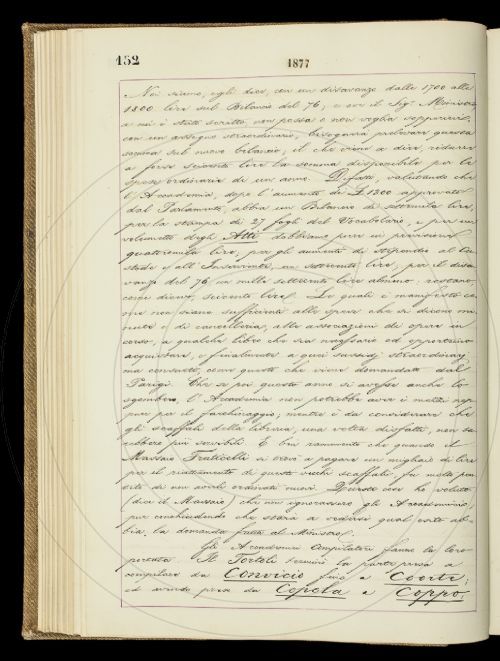 152
1877
Noi siamo, egli dice, con un disavanzo dalle 1700 alle
1800 lire sul Bilancio del 76; e ove il Sig.r Ministro
a cui è stato scritto, non possa o non voglia sopperirvi
con un assegno straordinario, bisognerà prelevare questa
somma sul nuovo bilancio; il che viene a dire, ridurre
a forse seicento lire la somma disponibile per le
spese ordinarie di un anno. Difatti, calcolando che
l'Accademia, dopo l'aumento di £ 1300 approvato
dal Parlamento, abbia un Bilancio di settemila lire,
per la stampa di 27 fogli del Vocabolario, e per un
volumetto degli Atti debbano porsi in previsione
quattromila lire, per gli aumenti di stipendio al Cu-
stode e all' Inserviente, settecento lire; per il disa-
vanzo del 76 in mille settecento lire almeno: restano,
come dicevo, seicento lire. Le quali è manifesto co-
me non siano sufficienti alle spese che si dicono mi-
nute e di cancelleria, alle associazioni di opere in
corso, a qualche libro che sia necessario ed opportuno
acquistare, e finalmente a quei sussidj straordinarj
ma consueti, come questo che viene domandato dal
Parigi. Che se poi questo anno si avesse anche lo
sgombero, l'Accademia non potrebbe aver i mezzi nep-
pure per il facchinaggio; mentre è da considerare che
gli scaffali della libreria, una volta disfatti, non sa-
rebbero più servibili. E ben rammento che quando il
Massaio Fraticelli si trovò a pagare un migliaio di lire
per il riattamento di questi vecchi scaffali, fu molto pen-
tito di non averli ordinati nuovi. Questo io ho voluto
(dice il Massaio) che non ignorassero gli Accademici,
pur conchiudendo che starà a vedersi qual esito ab-
bia la domanda fatta al Ministro.
Gli Accademici Compilatori fanno la loro
proposta. Il Tortoli esaminò la parte presa a
compilare da Convicio fino a Coorte;
ed avendo presa da Copela a Coppo,